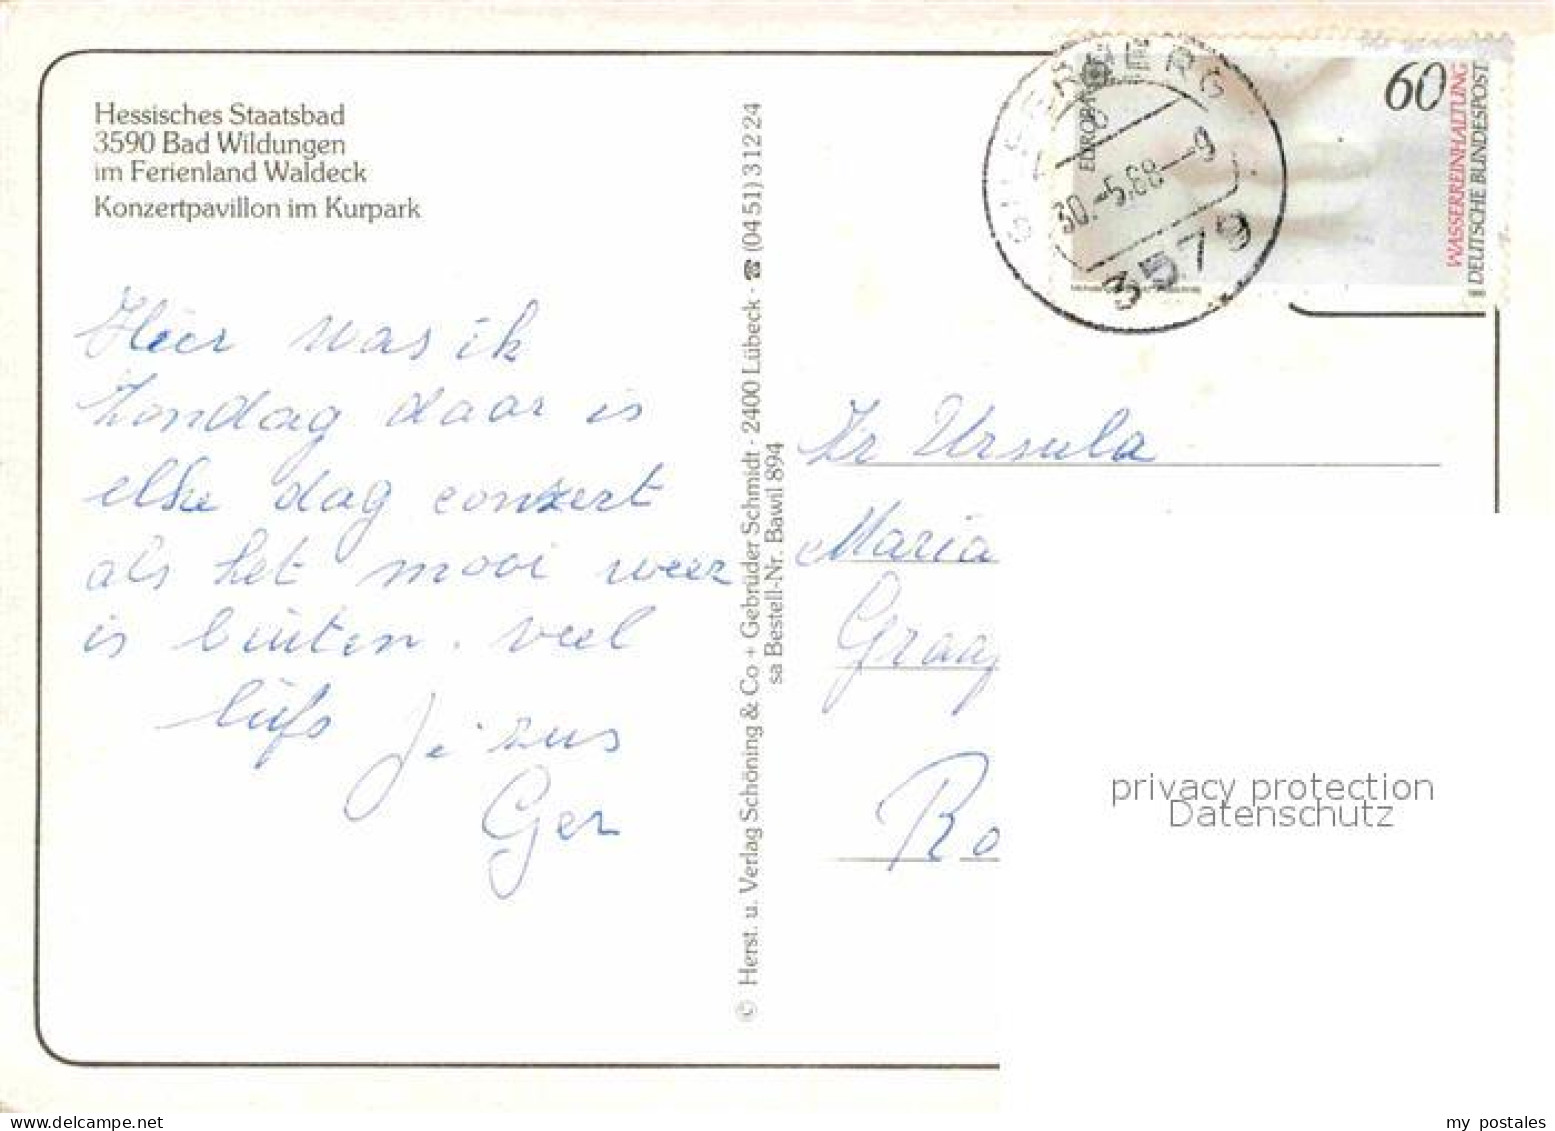 Hessisches Staatsbad
3590 Bad Wildungen
im Ferienland Waldeck
Konzertpavillon im Kurpark
Hier was ik
Zondag daar is
elke dag conzert
als het mooi weer
is buiten. veel
liefs je zus
Ger
© Herst. u. Verlag Schöning & Co + Gebrüder Schmidt · 2400 Lübeck · ☎ (0451) 31224
sa Bestell-Nr. Bawil 894
GILSERBERG
30.-5.88--9
3579
EUROPA
60
WASSERREINHALTUNG
DEUTSCHE BUNDESPOST
Zr Ursula
Maria
Graaf
Ro
privacy protection
Datenschutz
my postales